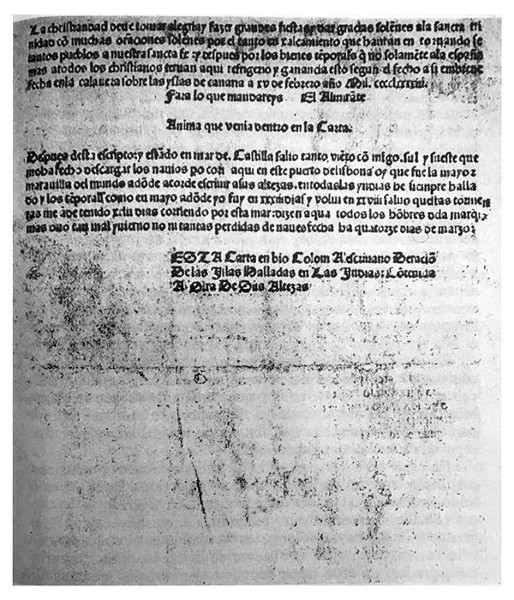 La christiandad deue tomar alegria y fazer grandes fiestas y dar gracias solẽnes ala sancta tri
nidad cõ muchas oraciones solẽnes por el tanto en xalçamiento que hauran en tornando se
tantos pueblos a nuestra sancta fe y despues por los bienes tẽporales q̃ no solamẽte ala españa
mas atodos los christianos ternan aqui refrigerio y ganancia esto segun el fecho a si embreue
fecha enla calauera sobre las yslas de canaria a xv de febrero año Mil. cccclxxxxiii.
Fara lo que mandareys El Almirãte
Anima que venia dentro en la Carta.
Despues desta escripto: y estãdo en mar de. Castilla salio tanto viẽto cõ migo. sul y sueste que
me ha fecho descargar los nauios po cori aqui en este puerto delisbona oy que fue la mayor
marauilla del mundo adõde acorde escriuir asus altezas. entodas las yndias he siempre halla
do y los tẽporals como en mayo adõde yo fuy en xxxiii dias y volui en xxviii saluo questas tormẽ
tas me ãde tenido xiiii dias corriendo por esta mar: dizen aqua todos los hõbres dela mar q̃ia
mas ouo tan mal yuierno no ni tantas perdidas de naues fecha ha quatorze dias de março:
ESTA Carta en bio Colom A escriuano Deraciõ
De las Islas Halladas en Las Indias: Cõtenida
A Otra De Sus Altezas